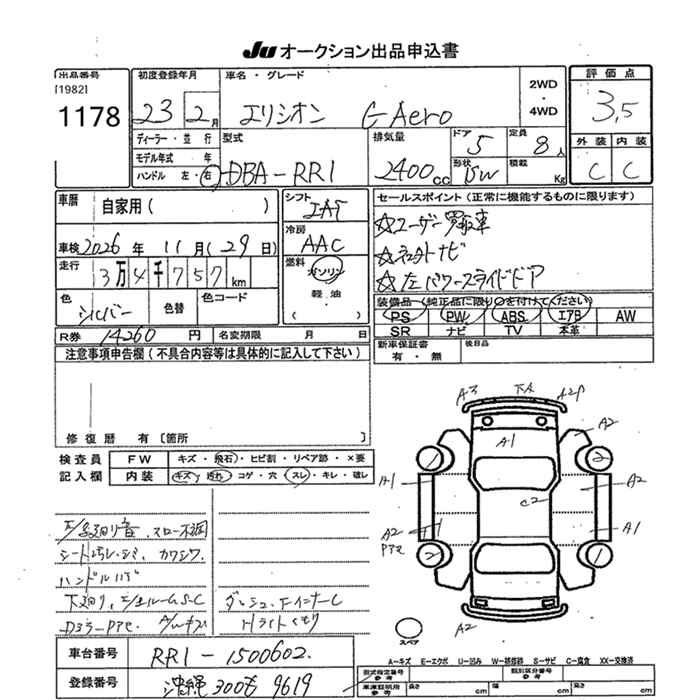 Ju オークション出品申込書
出品番号 初度登録年月 車名・グレード 2WD・4WD 評価点
[1982]
1178 23年2月 エリシオン G Aero 3,5
ディーラー・並行 型式 排気量 ドア 定員 外装 内装
モデル年式 年 DBA-RR1 2400cc 5 8人 C C
ハンドル 左・右 形状 積載 Kg
車歴 自家用( ) シフト IAT セールスポイント(正常に機能するものに限ります)
冷房 AAC ☆ユーザー買取車
車検 2026年 11月(29日) ☆ネットナビ
走行 3万4千757km 燃料 ガソリン ☆左パワースライドドア
軽油・( )
色 シルバー 色替 色コード 装備品(純正品に限り○を付けてください)
PS PW ABS エアB AW
R券 14260円 名変期限 月 日 SR ナビ TV 本革
注意事項申告欄(不具合内容等は具体的に記入して下さい) 新車保証書 後日品
有・無
修復歴 有[箇所
検査員 FW キズ・飛石・ヒビ割・リペア跡・×要
記入欄 内装 キズ・汚れ・コゲ・穴・スレ・キレ・破レ
A3 下A A2P
A2
A1
2 2
A1 A2
C2
A2 A1
PTE
2 1
スペア A2
シート汚レ・シミ、カワシワ
ハンドル
車台番号 RR1-1500602
登録番号 沖縄 300 も 9619
A=キズ E=エクボ U=凹み W=補修跡 S=サビ C=腐食 XX=交換済
型式指定番号 参考 類別区分番号 参考
車庫証明用 参考 長さ cm 幅 cm 高さ cm